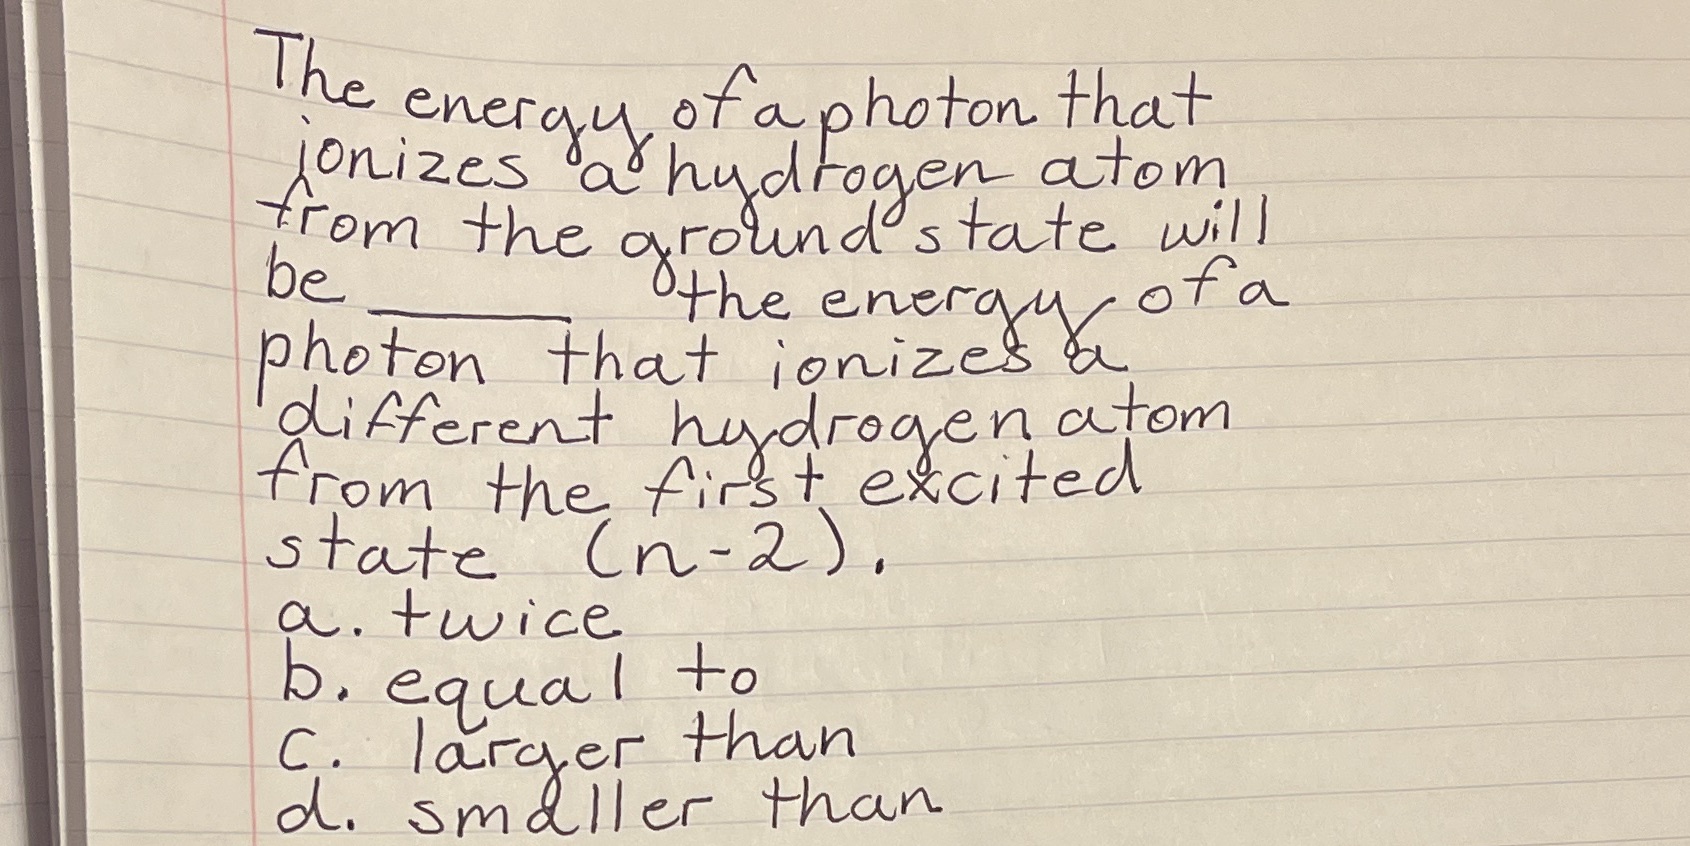 The energy of a photon that
ionizes a hydrogen atom
from the ground state will
be ______ the energy of a
photon that ionizes a
different hydrogen atom
from the first excited
state (n-2).
a. twice
b. equal to
c. larger than
d. smaller than